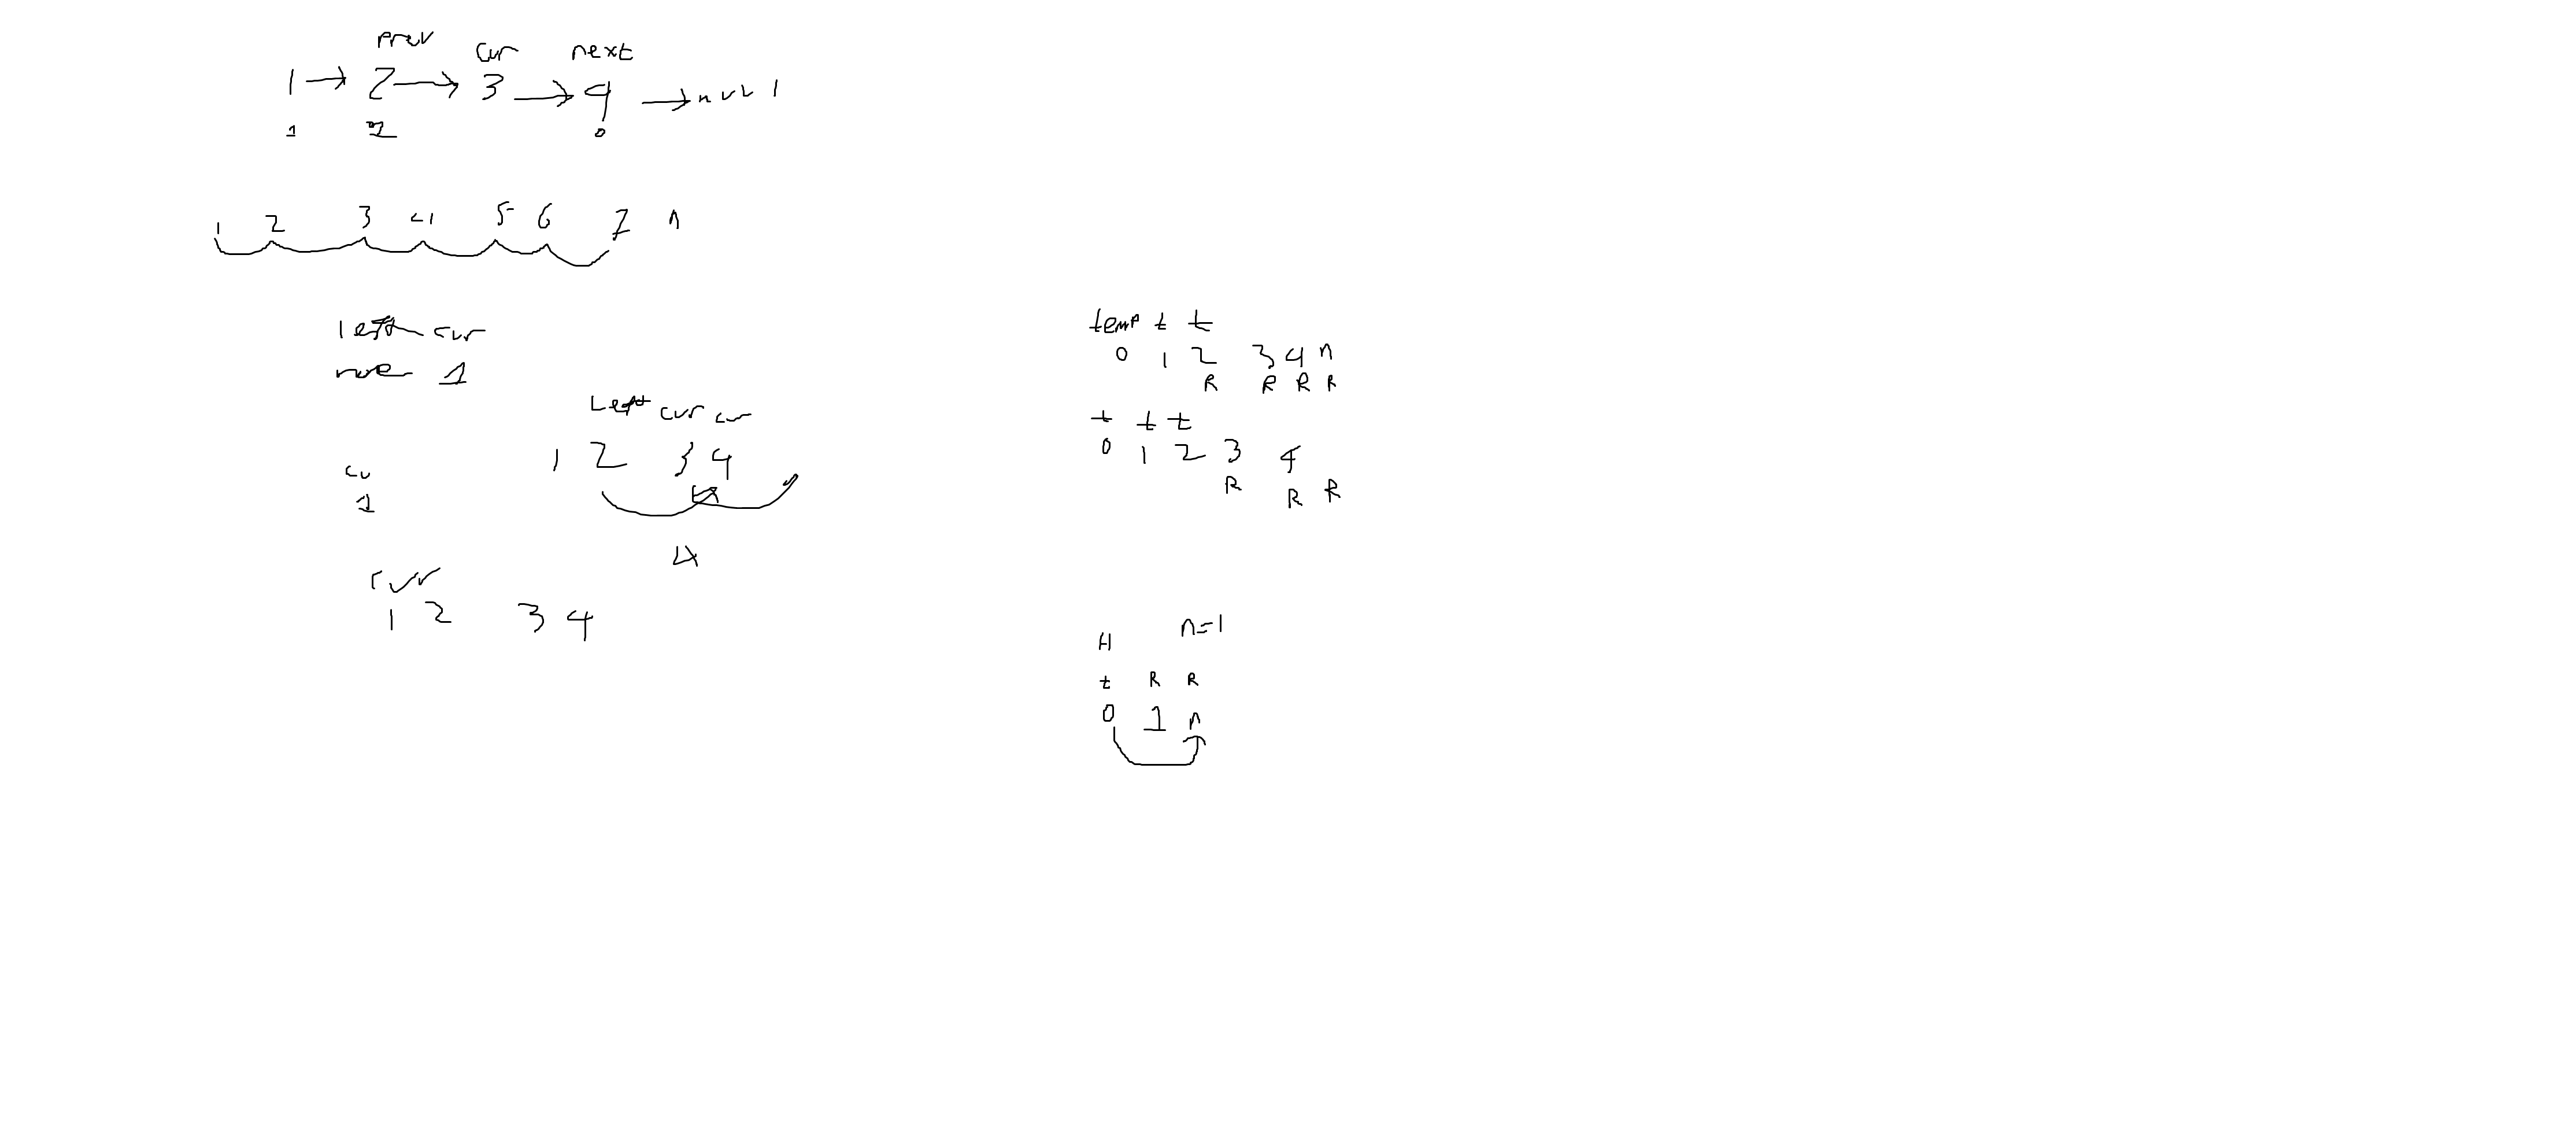 prev cur next
1 → 2 → 3 → 4 → null
1 2 0
1 2 3 4 5 6 7 n
left cur
1
Left cur cur
1 2 3 4
cu
1
4
curr
1 2 3 4
temp t t
0 1 2 3 4 n
R R R R
t t t
0 1 2 3 4
R R R
H n=1
t R R
0 1 n